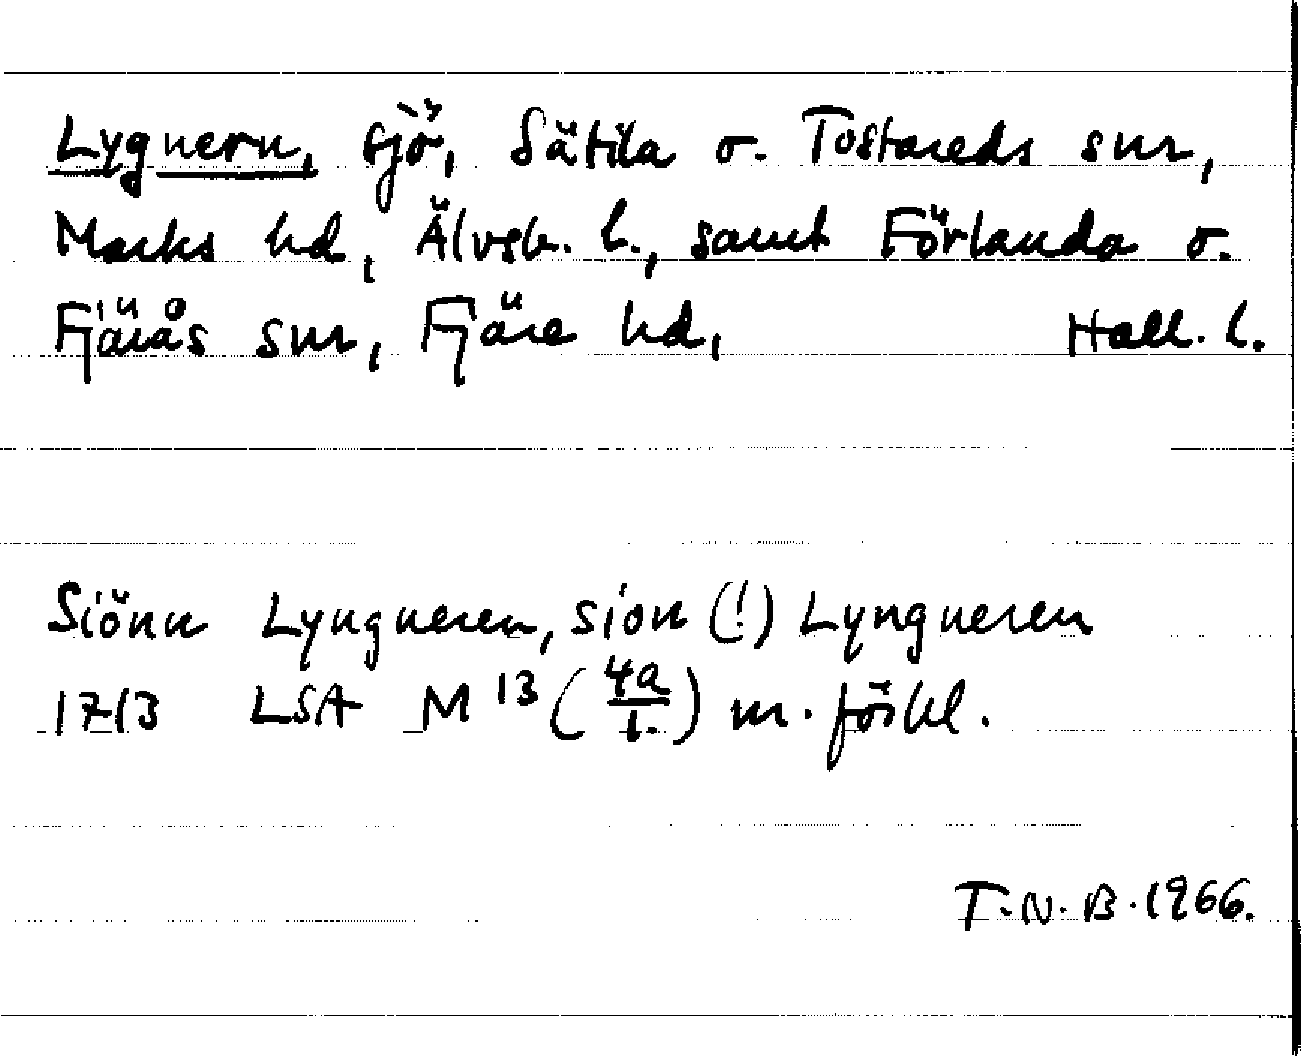 Lygnern, sjö, Sätila o. Tostareds snr,
Marks hd, Älvsb. l., samt Förlanda o.
Fjärås snr, Fjäre hd, Hall. l.
Siönn Lyngneren, sion (!) Lyngneren
1713 LSA M 13 (4a/1.) m. förkl.
T.N.B. 1966.